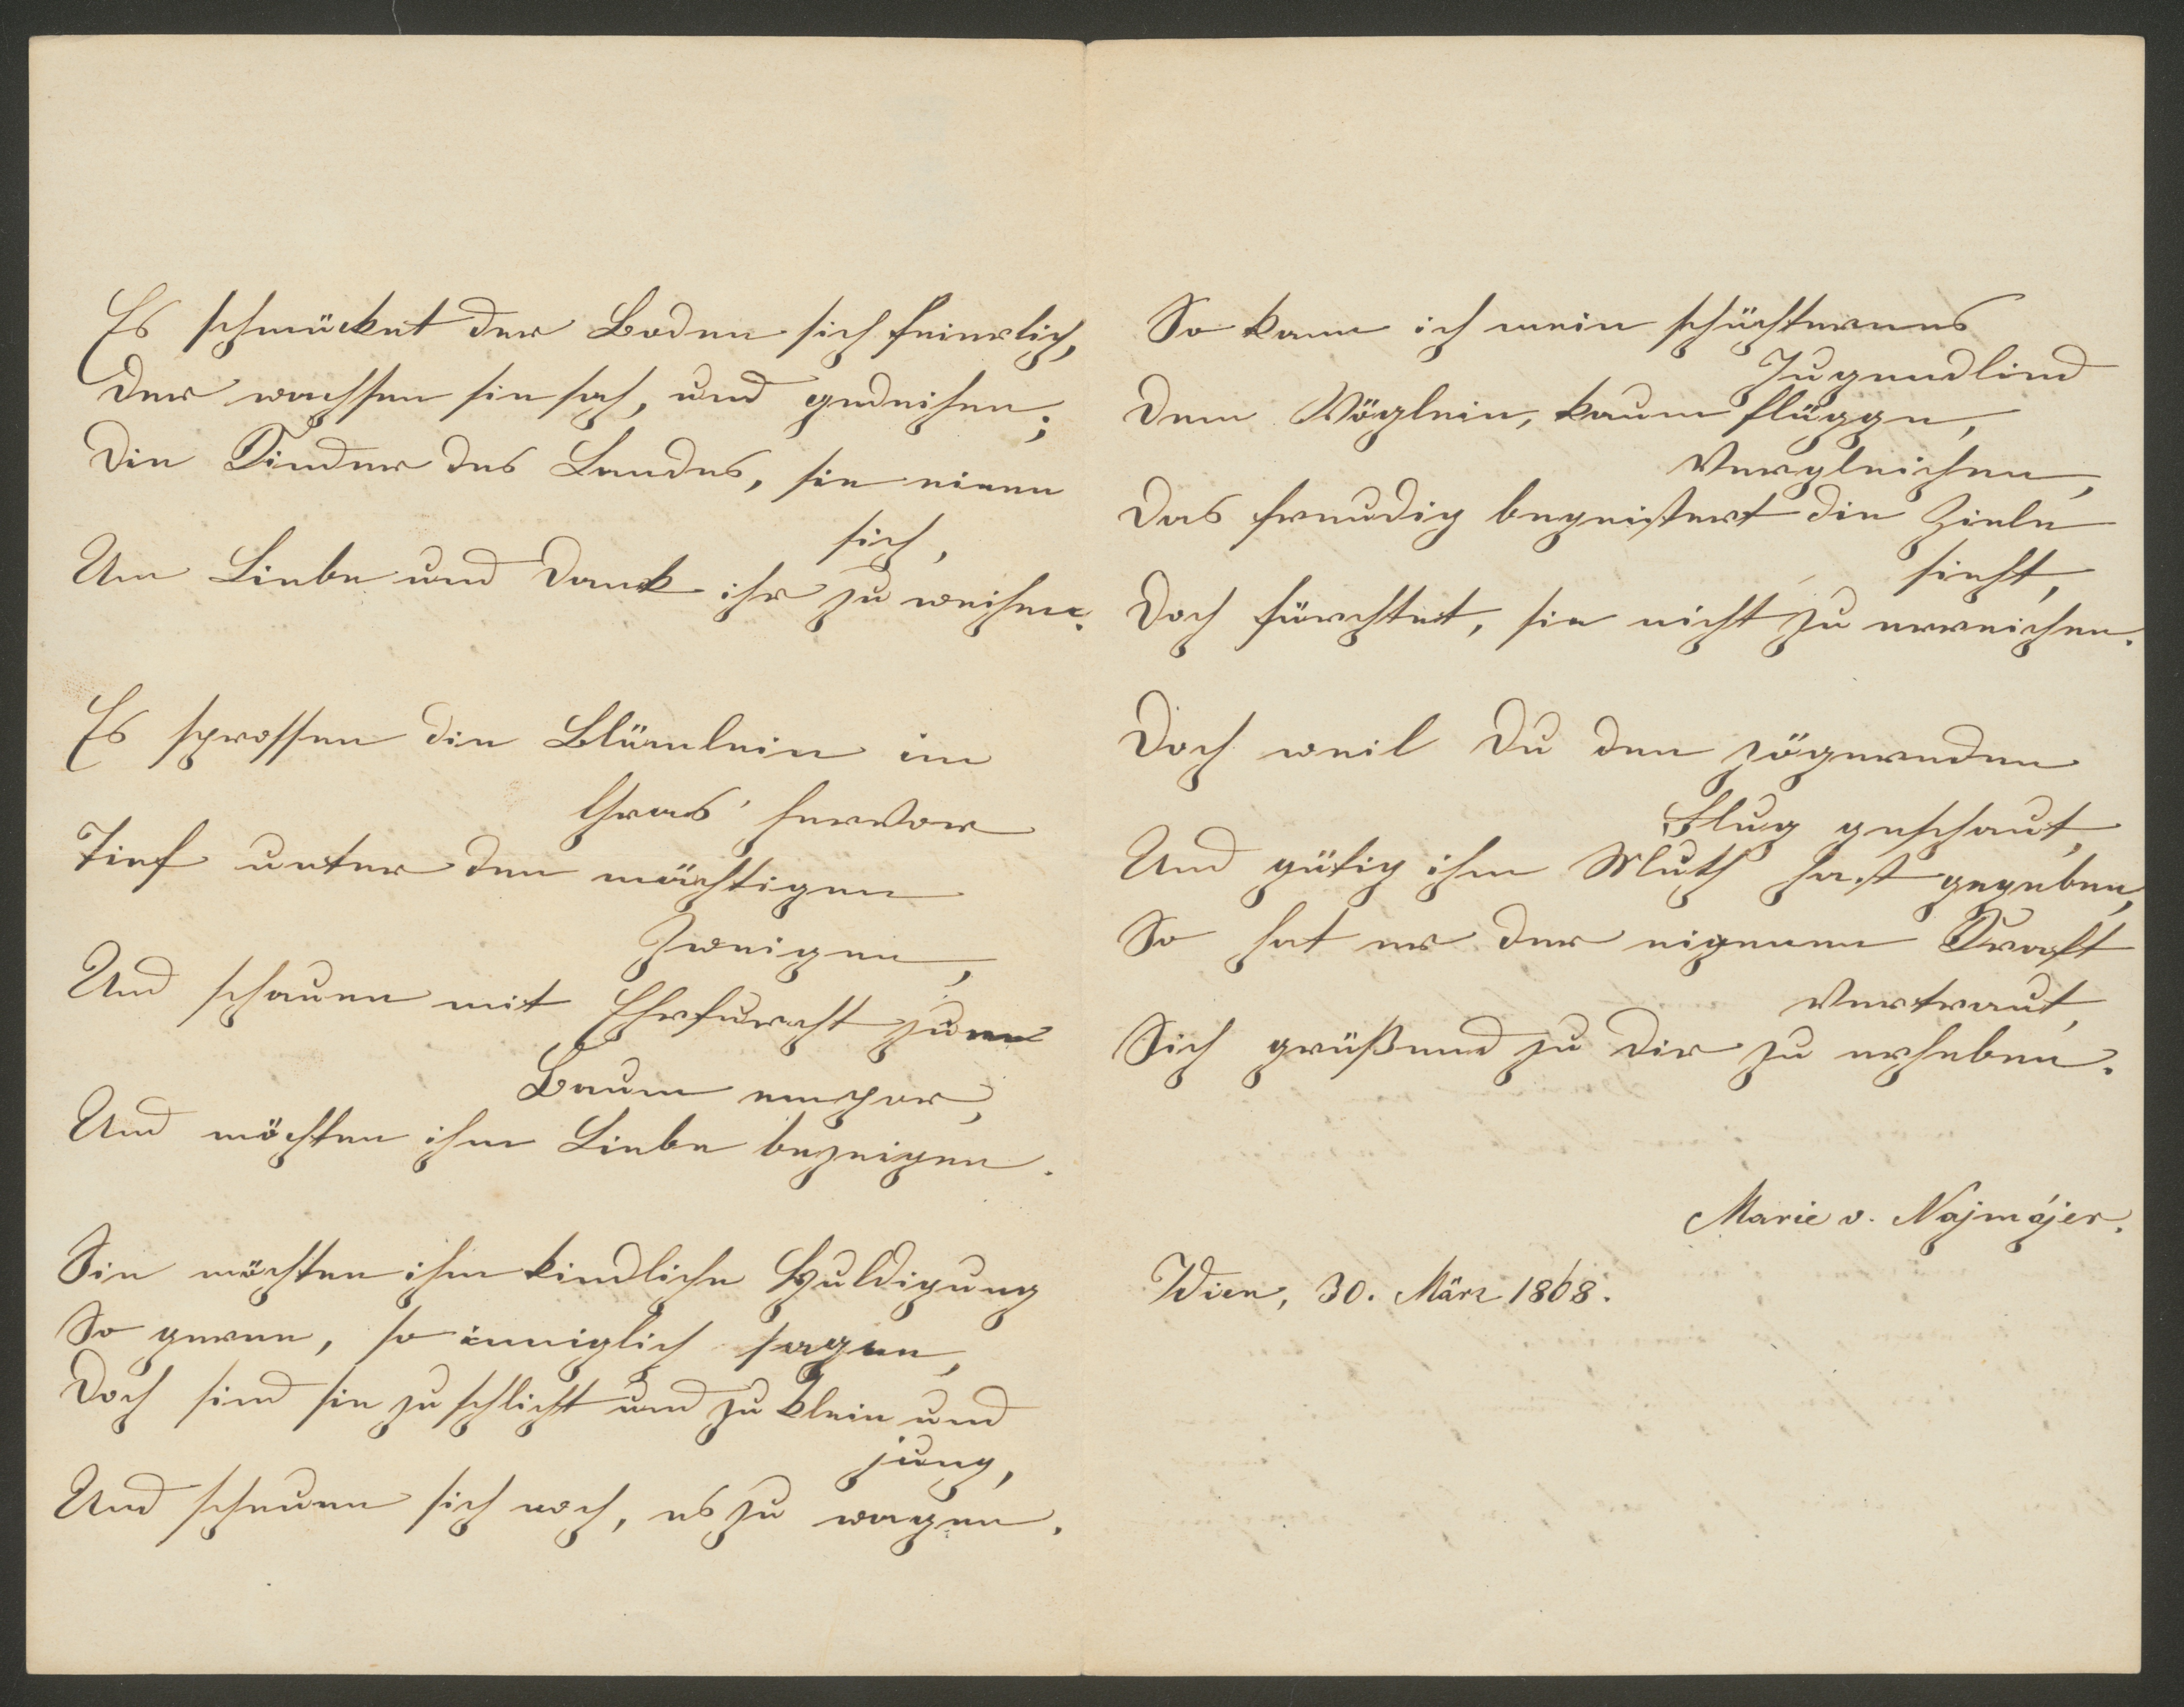 Es schmücket der Boden sich feierlich,
Der wachsen sie sah, und gedeihen;
Die Kinder des Landes, sie einen
sich,
Um Liebe und Dank ihr zu weihen.
Es sprossen die Blümlein im
Gras' hervor
Tief unter den mächtigen
Zweigen,
Und schauen mit Ehrfurcht zum
Baum empor,
Und möchten ihm Liebe bezeigen.
Sie möchten ihm kindliche Huldigung
So gerne, so inniglich sagen,
Doch sind sie zu schlicht und zu klein und
jung,
Und scheuen sich noch, es zu wagen.
So kann ich mein schüchternes
Jugendlied
Dem Vöglein, kaum flügge,
vergleichen,
Das freudig begeistert die Ziele
sieht,
Doch fürchtet, sie nicht zu erreichen.
Doch weil Du den zögernden
Flug geschaut,
Und gütig ihm Muth hast gegeben,
So hat er der eigenen Kraft
vertraut,
Sich grüßend zu Dir zu erheben.
Marie v. Najmájer.
Wien, 30. März 1868.